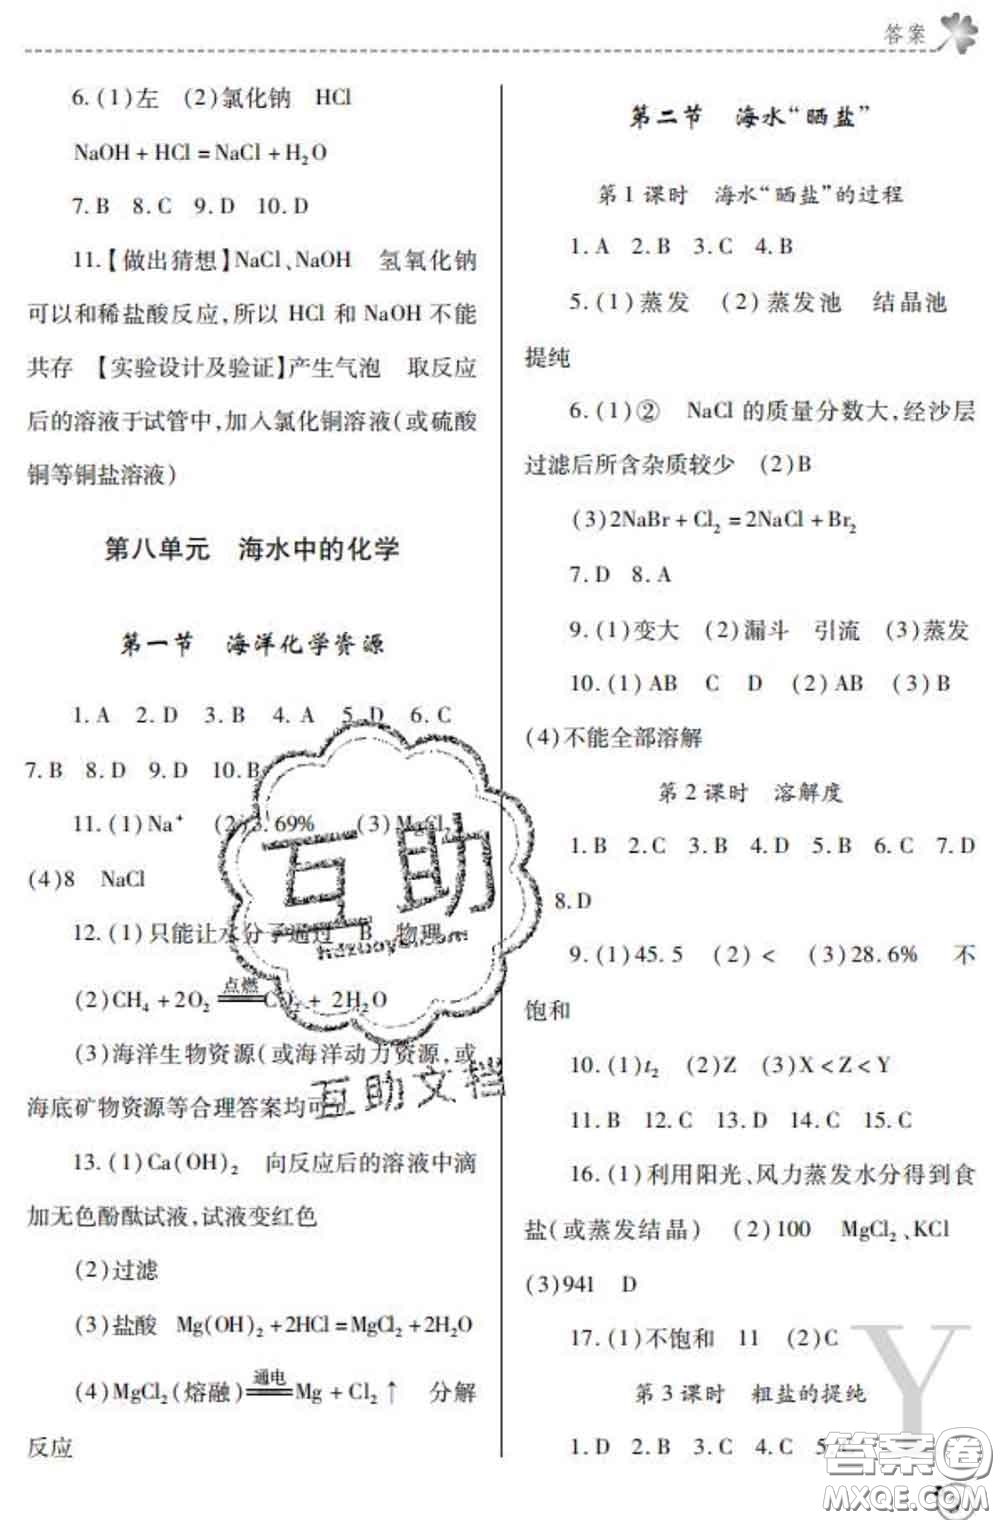 答案
6.(1)左 (2)氯化钠 HCl
NaOH + HCl = NaCl + H₂O
7.B 8.C 9.D 10.D
11.【做出猜想】NaCl、NaOH 氢氧化钠
可以和稀盐酸反应,所以 HCl 和 NaOH 不能
共存 【实验设计及验证】产生气泡 取反应
后的溶液于试管中,加入氯化铜溶液(或硫酸
铜等铜盐溶液)
第八单元 海水中的化学
第一节 海洋化学资源
1.A 2.D 3.B 4.A 5.D 6.C
7.B 8.D 9.D 10.B
11.(1)Na⁺ (2)3.69% (3)MgCl₂
(4)8 NaCl
12.(1)只能让水分子通过 B 物理
(2)CH₄ + 2O₂ 点燃 CO₂ + 2H₂O
(3)海洋生物资源(或海洋动力资源,或
海底矿物资源等合理答案均可)
13.(1)Ca(OH)₂ 向反应后的溶液中滴
加无色酚酞试液,试液变红色
(2)过滤
(3)盐酸 Mg(OH)₂ + 2HCl = MgCl₂ + 2H₂O
(4)MgCl₂(熔融) 通电 Mg + Cl₂↑ 分解
反应
第二节 海水“晒盐”
第1课时 海水“晒盐”的过程
1.A 2.B 3.C 4.B
5.(1)蒸发 (2)蒸发池 结晶池
提纯
6.(1)② NaCl 的质量分数大,经沙层
过滤后所含杂质较少 (2)B
(3)2NaBr + Cl₂ = 2NaCl + Br₂
7.D 8.A
9.(1)变大 (2)漏斗 引流 (3)蒸发
10.(1)AB C D (2)AB (3)B
(4)不能全部溶解
第2课时 溶解度
1.B 2.C 3.B 4.D 5.B 6.C 7.D
8.D
9.(1)45.5 (2)< (3)28.6% 不
饱和
10.(1)t₂ (2)Z (3)X < Z < Y
11.B 12.C 13.D 14.C 15.C
16.(1)利用阳光、风力蒸发水分得到食
盐(或蒸发结晶) (2)100 MgCl₂、KCl
(3)941 D
17.(1)不饱和 11 (2)C
第3课时 粗盐的提纯
1.D 2.B 3.C 4.C
互助
hdzuoye.com
互助文档
Y
答案圈
MXQE.COM